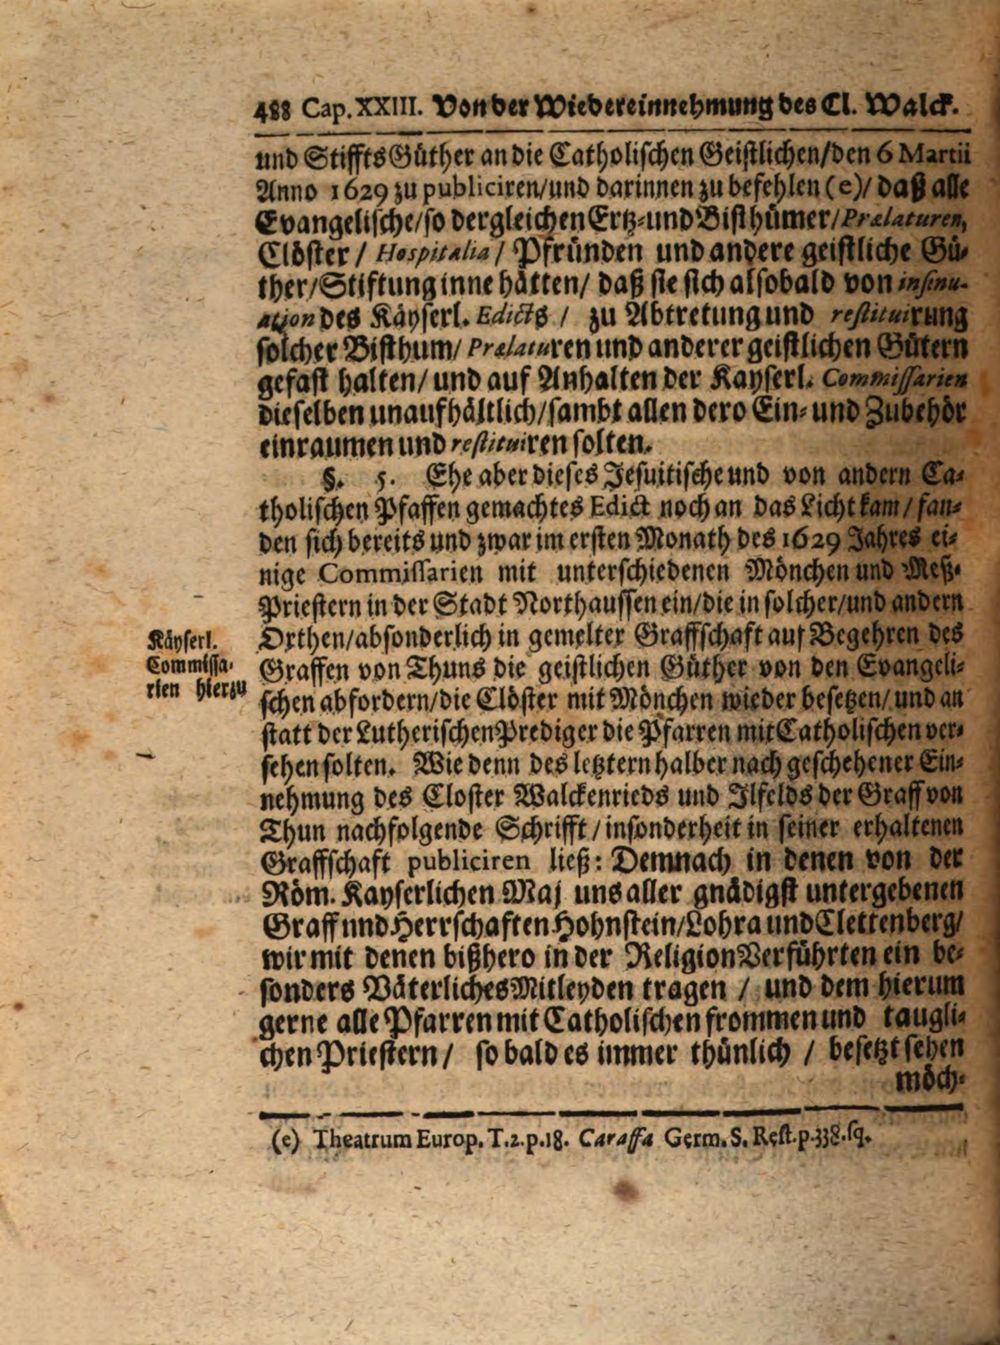 488 Cap. XXIII. Von der Wiedereinnehmung des Cl. Walck.
und Stiffts Güther an die Catholischen Geistlichen/den 6 Martii
Anno 1629 zu publiciren/und darinnen zu befehlen (e)/ daß alle
Evangelische/so dergleichen Ertz- und Bisthümer/Prælaturen,
Clöster / Hospitalia / Pfründen und andere geistliche Gü-
ther/Stiftung inne hätten/ daß sie sich alsobald von insinu-
ation des Käyserl. Edicts / zu Abtretung und restituirung
solcher Bisthum/ Prælaturen und anderer geistlichen Gütern
gefast halten/ und auf Anhalten der Kayserl. Commissarien
dieselben unaufhältlich/sambt allen dero Ein- und Zubehör
einraumen und restituiren solten.
§. 5. Ehe aber dieses Jesuitische und von andern Ca-
tholischen Pfaffen gemachtes Edict noch an das Licht kam/ fan-
den sich bereits und zwar im ersten Monath des 1629 Jahres ei-
nige Commissarien mit unterschiedenen Mönchen und Meß-
Priestern in der Stadt Northaussen ein/die in solcher/und andern
Orthen/absonderlich in gemelter Graffschaft auf Begehren des
Graffen von Thuns die geistlichen Güther von den Evangeli-
schen abfordern/die Clöster mit Mönchen wieder besetzen/ und an
statt der Lutherischen Prediger die Pfarren mit Catholischen ver-
sehen solten. Wie denn des letztern halber nach geschehener Ein-
nehmung des Closter Walckenrieds und Ilfelds der Graff von
Thun nachfolgende Schrifft / insonderheit in seiner erhaltenen
Graffschaft publiciren ließ: Demnach in denen von der
Röm. Kayserlichen Maj uns aller gnädigst untergebenen
Graff und Herrschaften Hohnstein/Lohra und Clettenberg/
wir mit denen bißhero in der Religion Verführten ein be-
sonders Väterliches Mitleyden tragen / und dem hierum
gerne alle Pfarren mit Catholischen frommen und taugli-
chen Priestern/ so bald es immer thünlich / besetzt sehen
möch-
Käyserl.
Commissa-
rien hierzu
(e) Theatrum Europ. T. 2. p. 18. Caraffa Germ. S. Rest. p. 338. sq.